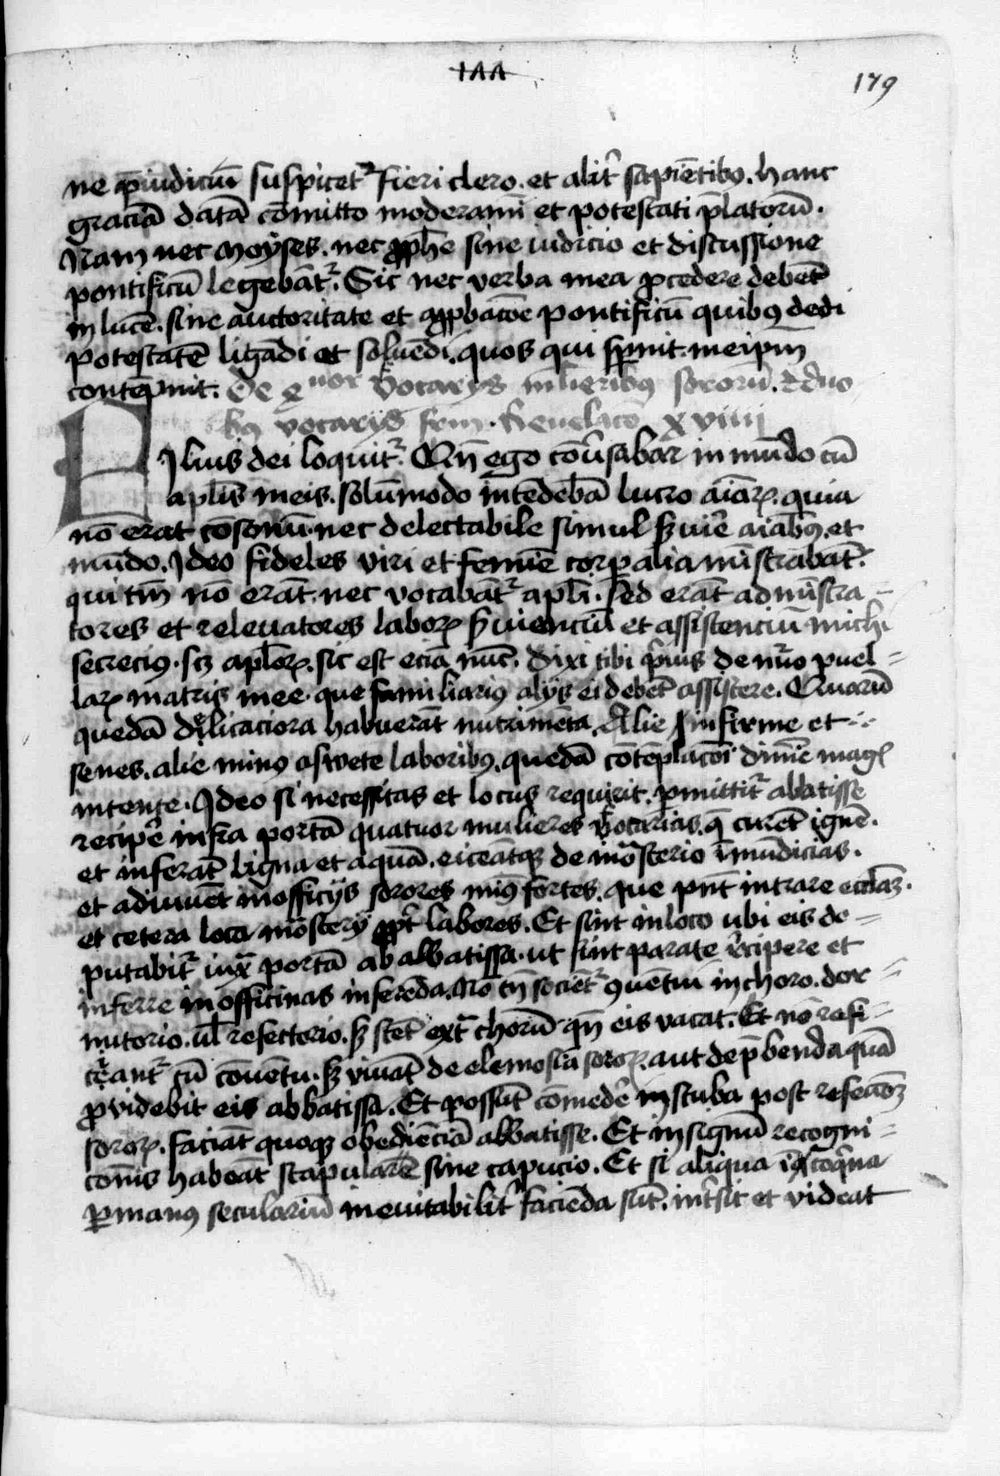 179
ne p̄iudiciū suspicet᷑ fieri clero. et alit᷑ sapiētibꝫ. hanc
graciā datā cōmitto moderamī et potestati p̄latorū.
Nam nec Moyses. nec ꝓphe sine iudicio et discussione
pontificū legebāt᷑. Sic nec verba mea ꝓcedere debēt
in lucē. sine auctoritate et apꝓbacōe pontificū quibꝫ dedi
potestatē ligādi et soluēdi. quos qui spernit. meip̄m
contēpnit. De qͣtuor vocarijs mulieribꝫ sororū. et duo
bꝫ vocarijs frm̄. Reuelaco xviiij
Filius dei loquit᷑. Qn̄ ego cōu̓sabar in mūdo cū
aplīs meis. solūmodo intēdebā lucro aīarꝝ. quia
nō erat cōsonū. nec delectabile simul s̓uire aīabꝫ. et
mūdo. Ideo fideles viri et femine corꝑalia mīstrabāt.
qui tn̄ nō erāt. nec vocabāt᷑ aplī. sed erāt admīstra=
tores et releuatores laborꝝ s̓uienciū et assistenciū michi
secrecius. scꝫ aplorꝝ. sic est eciā nūc. dixi tibi p̓us de nūo puel=
larꝝ matris mee. que familiarius alijs ei debēt assistere. Quarū
quedā delicaciora habuerāt nutrimēta. Alie infirme et
senes. alie minꝰ aswete laboribꝫ. quedā cōtēplacōi diuīe magꝭ
intente. Ideo si necessitas et locus requirit. ꝑmittit᷑ abbatisse
recipe infra portā quatuor mulieres vocarias. q̄ curēt ignē.
et inferāt ligna et aquā. eiceātqꝫ de mōasterio īmūdicias.
et adiuuēt in officijs sorores minꝰ fortes. que pn̄t intrare eccl̄iaꝫ.
et cetera loca mōsterij ꝓpt̓ labores. Et sint in loco ubi eis de=
putabit᷑ iuxͣ portā ab abbatissa. ut sint parate recipere et
inferre in officinas inferēda. Nō tn̄ sociēt᷑ ꝯuētui in choro. dor=
mitorio. ul̄ refectorio. sꝫ stēt extͣ chorū qn̄ eis vacat. Et nō refi=
ciant᷑ cū cōuentu. sꝫ viuāt de elemosina sororꝝ. aut de p̄benda quā
ꝓvidebit eis abbatissa. Et possūt cōmedē in stuba post refectōꝫ
sororꝝ. faciāt quoqꝫ obediēciā abbatisse. Et in signū recogni=
cōnis habeāt scapularē sine capucio. Et si aliqua ī coquina
ꝑ manus seculariū ineuitabilit̓ faciēda sūt. int̓sit et videat